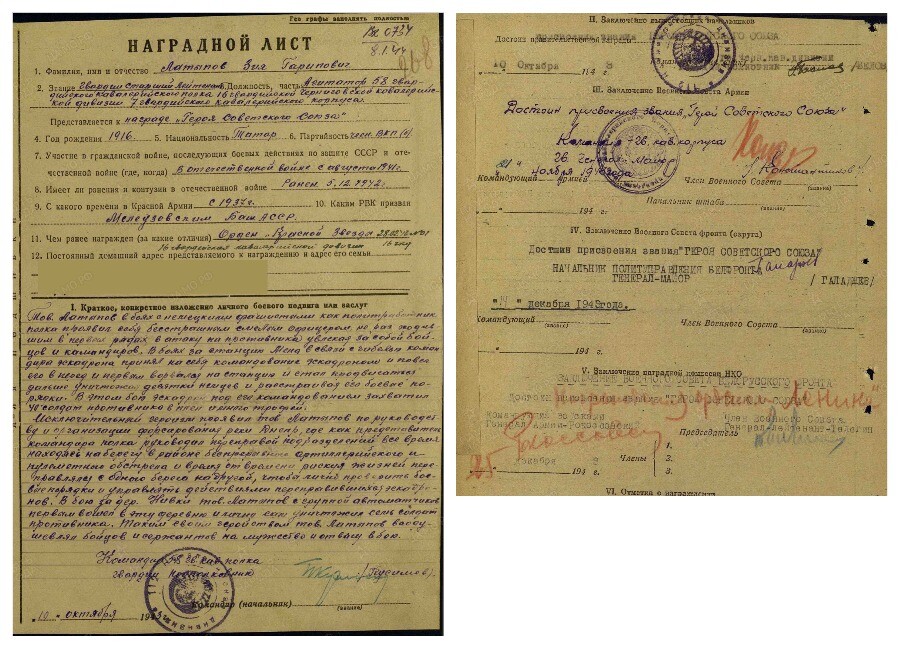 Все графы заполнять полностью
Вх 0734
8.1.44
НАГРАДНОЙ ЛИСТ
1. Фамилия, имя и отчество Латыпов Зия Гарипович
2. Звание Гвардии Старший Лейтен. Должность, часть Агитатор 58 гвар-
дийского кавалерийского полка 16 гвардейской Черниговской кавалерий-
ской дивизии 7 гвардейского кавалерийского корпуса.
Представляется к награде "Героя Советского Союза"
4. Год рождения 1916. 5. Национальность Татар 6. Партийность член ВКП(б)
7. Участие в гражданской войне, последующих боевых действиях по защите СССР и оте-
чественной войне (где, когда) В отечественной войне с августа 1941г.
8. Имеет ли ранения и контузии в отечественной войне Ранен 5.12.1942 г.
9. С какого времени в Красной Армии С 1937г. 10. Каким РВК призван
Мелеузовским Баш АССР.
11. Чем ранее награжден (за какие отличия) Орден "Красной Звезда"
12. Постоянный домашний адрес представляемого к награждению и адрес его семьи
I. Краткое, конкретное изложение личного боевого подвига или заслуг
Тов. Латыпов, в боях с немецкими фашистами как политработник
полка проявил себя бесстрашным смелым офицером, не раз ходив-
шим в первых рядах в атаку на противника увлекая за собой бой-
цов и командиров. В боях за станцию Мена в связи с гибелью коман-
дира эскадрона принял на себя командование эскадроном и повел
его вперед и первым ворвался на станцию и стал продвигаться
дальше уничтожая десятки немцев и расстраивая его боевые по-
рядки. В этом бою эскадрон под его командованием захватил
40 солдат противника в плен и много трофей.
Исключительный героизм проявил тов Латыпов по руководст-
ву и организации форсирования реки Днепр, где как представитель
командира полка руководил переправой подразделений все время
находясь на берегу в районе беспрерывного артиллерийского и
пулеметного обстрела и время от времени рискуя жизней пере-
правлялся с одного берега на другой, чтобы лично проверить бое-
вые порядки и управлять действиями переправившихся эскадро-
нов. В бою за дер. Нивки тов. Латыпов с группой автоматчиков
первым вошел в эту деревню и лично сам уничтожил семь солдат
противника. Таким своим геройством тов. Латыпов вооду-
шевлял бойцов и сержантов на мужество и отвагу в бою.
Командир 58 гв. кав. полка
гвардии подполковник
Командир (начальник)
(подпись)
"10" октября 194
II. Заключение вышестоящих начальников
Достоин правительственной награды
10 Октября 194 3
III. Заключение Военного Совета Армии
Достоин присвоения звания "Герой Советского Союза"
Командир 7 гв. кав. корпуса
гв. генерал Майор
ноября 1943 года
Командующий Армией
Член Военного Совета
Начальник штаба
194 г.
IV. Заключение Военного Совета фронта (округа)
Достоин присвоения звания "ГЕРОЯ СОВЕТСКОГО СОЮЗА"
НАЧАЛЬНИК ПОЛИТУПРАВЛЕНИЯ БЕЛФРОНТА
ГЕНЕРАЛ-МАЙОР /ГАЛАДЖЕВ/
декабря 1943 года.
Командующий
Член Военного Совета
194 г.
V. Заключение наградной комиссии НКО
ЗАКЛЮЧЕНИЕ ВОЕННОГО СОВЕТА БЕЛОРУССКОГО ФРОНТА
Достоин присвоения звания "ГЕРОЯ СОВЕТСКОГО СОЮЗА"
Председатель
Члены
1.
2.
3.
декабря
194 г.
VI. Отметка о награждении